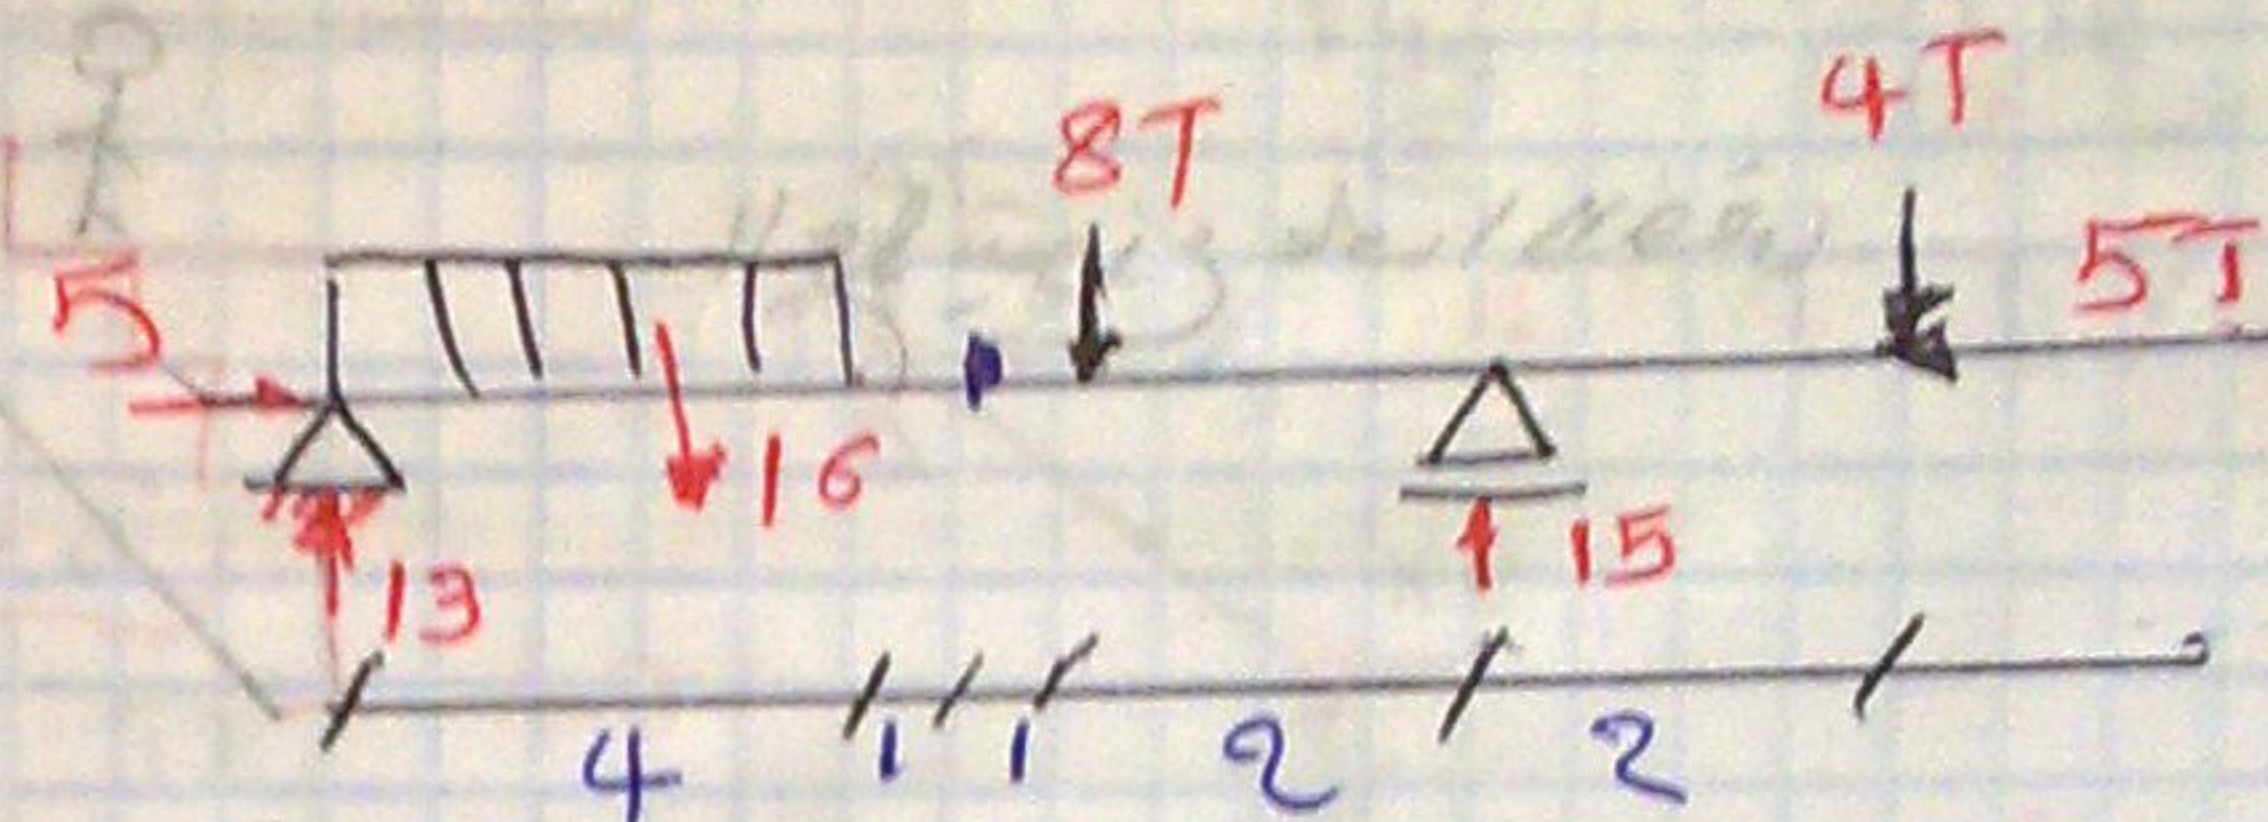 4T
8T
5T
5
16
15
13
4 1 1 2 2